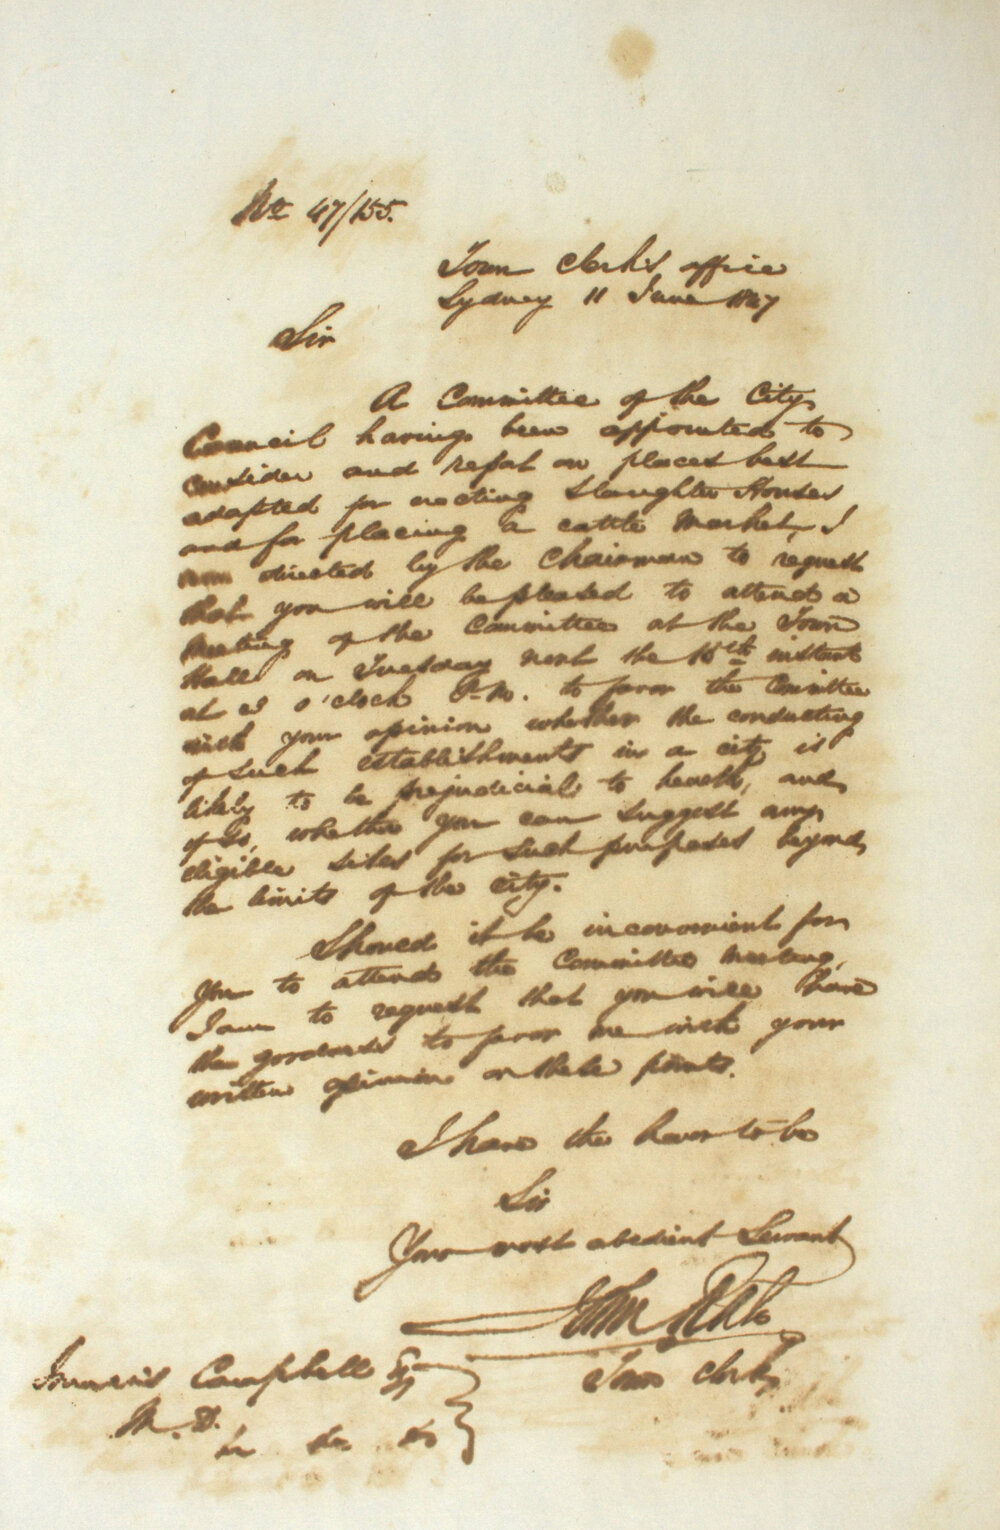 No 47/155.
Town Clerk's office
Sydney 11 June 1847
Sir
A Committee of the City
Council having been appointed to
consider and report on places best
adapted for erecting Slaughter Houses
and for placing a cattle Market, I
am directed by the Chairman to request
that you will be pleased to attend a
Meeting of the Committee at the Town
Hall on Tuesday next the 15th instant
at 3 o'clock P.M. to favor the Committee
with your opinion whether the conducting
of such establishments in a city is
likely to be prejudicial to health, and
if so, whether you can suggest any
eligible sites for such purposes beyond
the limits of the city.
Should it be inconvenient for
you to attend the Committee Meeting,
I am to request that you will have
the goodness to favor me with your
written opinion on these points.
I have the honor to be
Sir
Your most obedient Servant
John
Town Clerk
Francis Campbell Esq
M. D.
&c &c &c